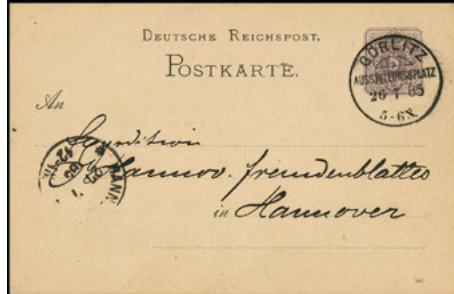 DEUTSCHE REICHSPOST.
POSTKARTE.
GÖRLITZ
AUSSTELLUNGSPLATZ
26 7 85
5-6N.
An
Expedition
Hannov. fremdenblattes
in Hannover
HANN